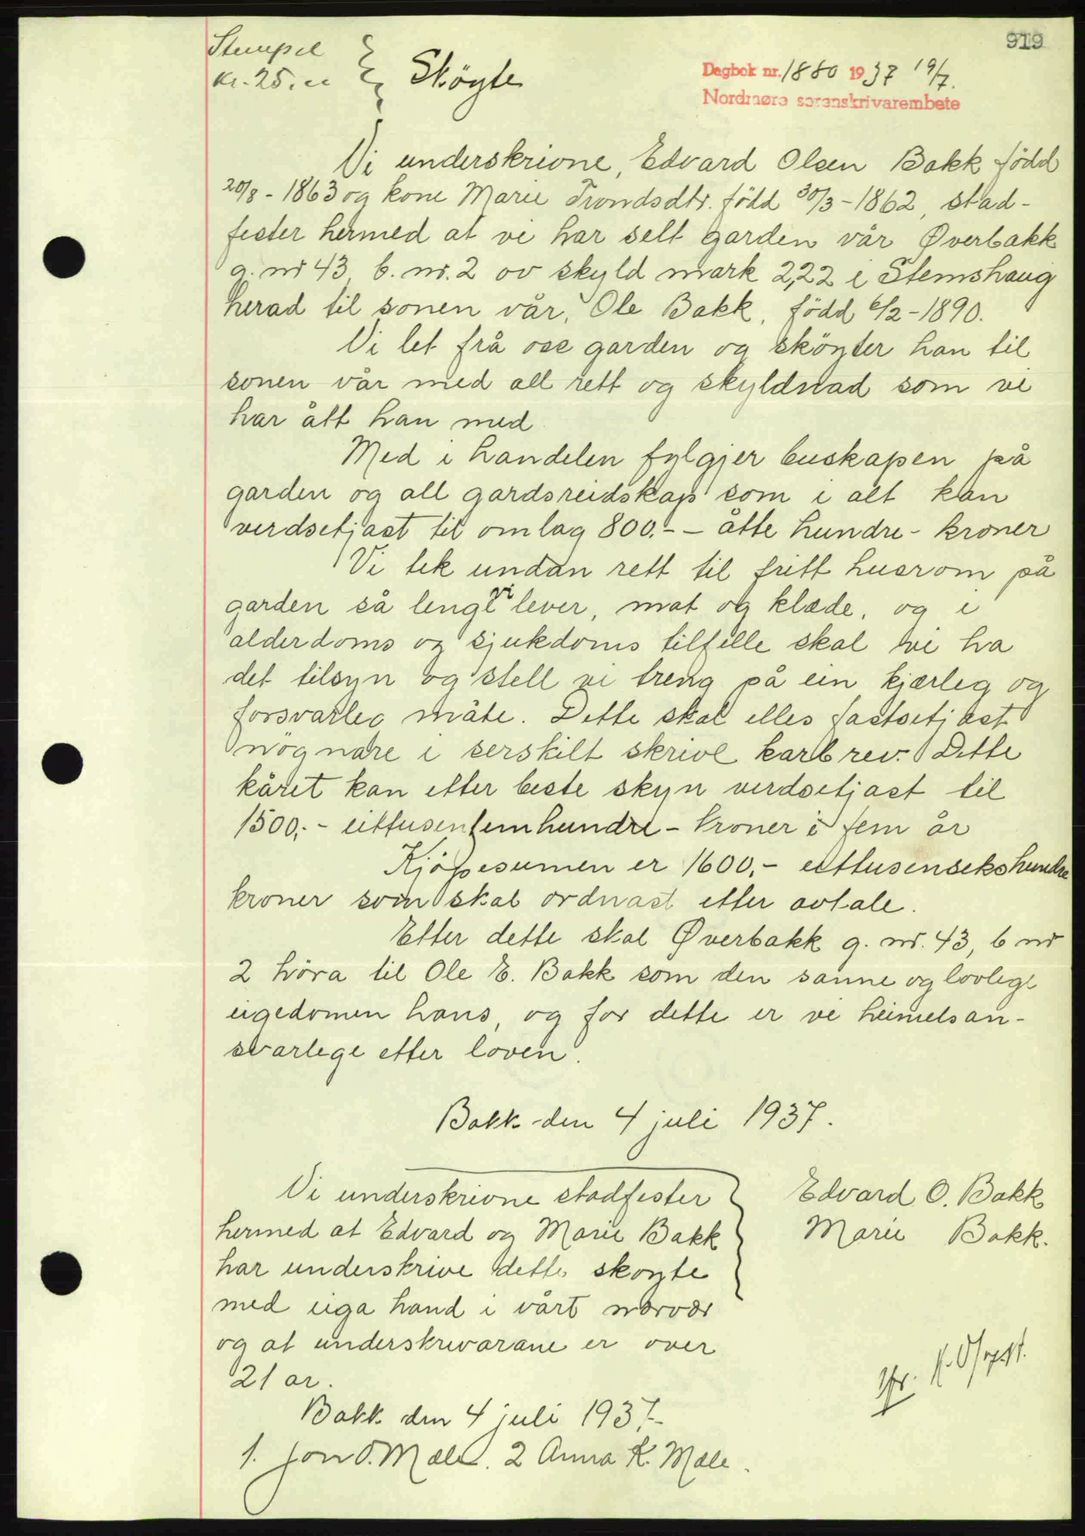 919
Stempel
kr. 25.00
Skøyte
Dagbok nr. 1880 1937 19/7.
Nordmøre sorenskrivarembete
Vi underskrivne, Edvard Olsen Bakk född
20/8 - 1863 og kone Marie Trondsdtr. född 30/3 - 1862, stad-
fester hermed at vi har selt garden vår Øverbakk
g. nr 43, b. nr. 2 av skyld mark 2,22 i Stemshaug
herad til sonen vår, Ole Bakk, född 6/2 - 1890.
Vi let frå oss garden og sköyter han til
sonen vår med all rett og skyldnad som vi
har ått han med
Med i handelen fylgjer buskapen på
garden og all gardsreidskap som i alt kan
verdsetjast til omlag 800.- - åtte hundre - kroner
Vi tek undan rett til fritt husrom på
garden så lenge vi lever, mat og klæde, og i
alderdoms og sjukdoms tilfelle skal vi ha
det tilsyn og stell vi treng på ein kjærleg og
forsvarleg måte. Dette skal elles fastsetjast
nögnare i serskilt skrive karbrev. Dette
kåret kan etter beste skyn verdsetjast til
1500,- eittusenfemhundre - kroner i fem år
Kjöpesumen er 1600,- eittusensekshundre
kroner som skal ordnast etter avtale.
Etter dette skal Øverbakk g. nr. 43, b nr
2 höra til Ole E. Bakk som den sanne og lovlege
eigedomen hans, og for dette er vi heimelsan-
svarlege etter loven.
Bakk den 4 juli 1937.
Vi underskrivne stadfester
hermed at Edvard og Marie Bakk
har underskrive dette skøyte
med eiga hand i vårt nærvær
og at underskrivarane er over
21 ar.
Edvard O. Bakk
Marie Bakk.
Bakk den 4 juli 1937.-
1. Jon O. Mæle. 2 Anna K. Mæle.